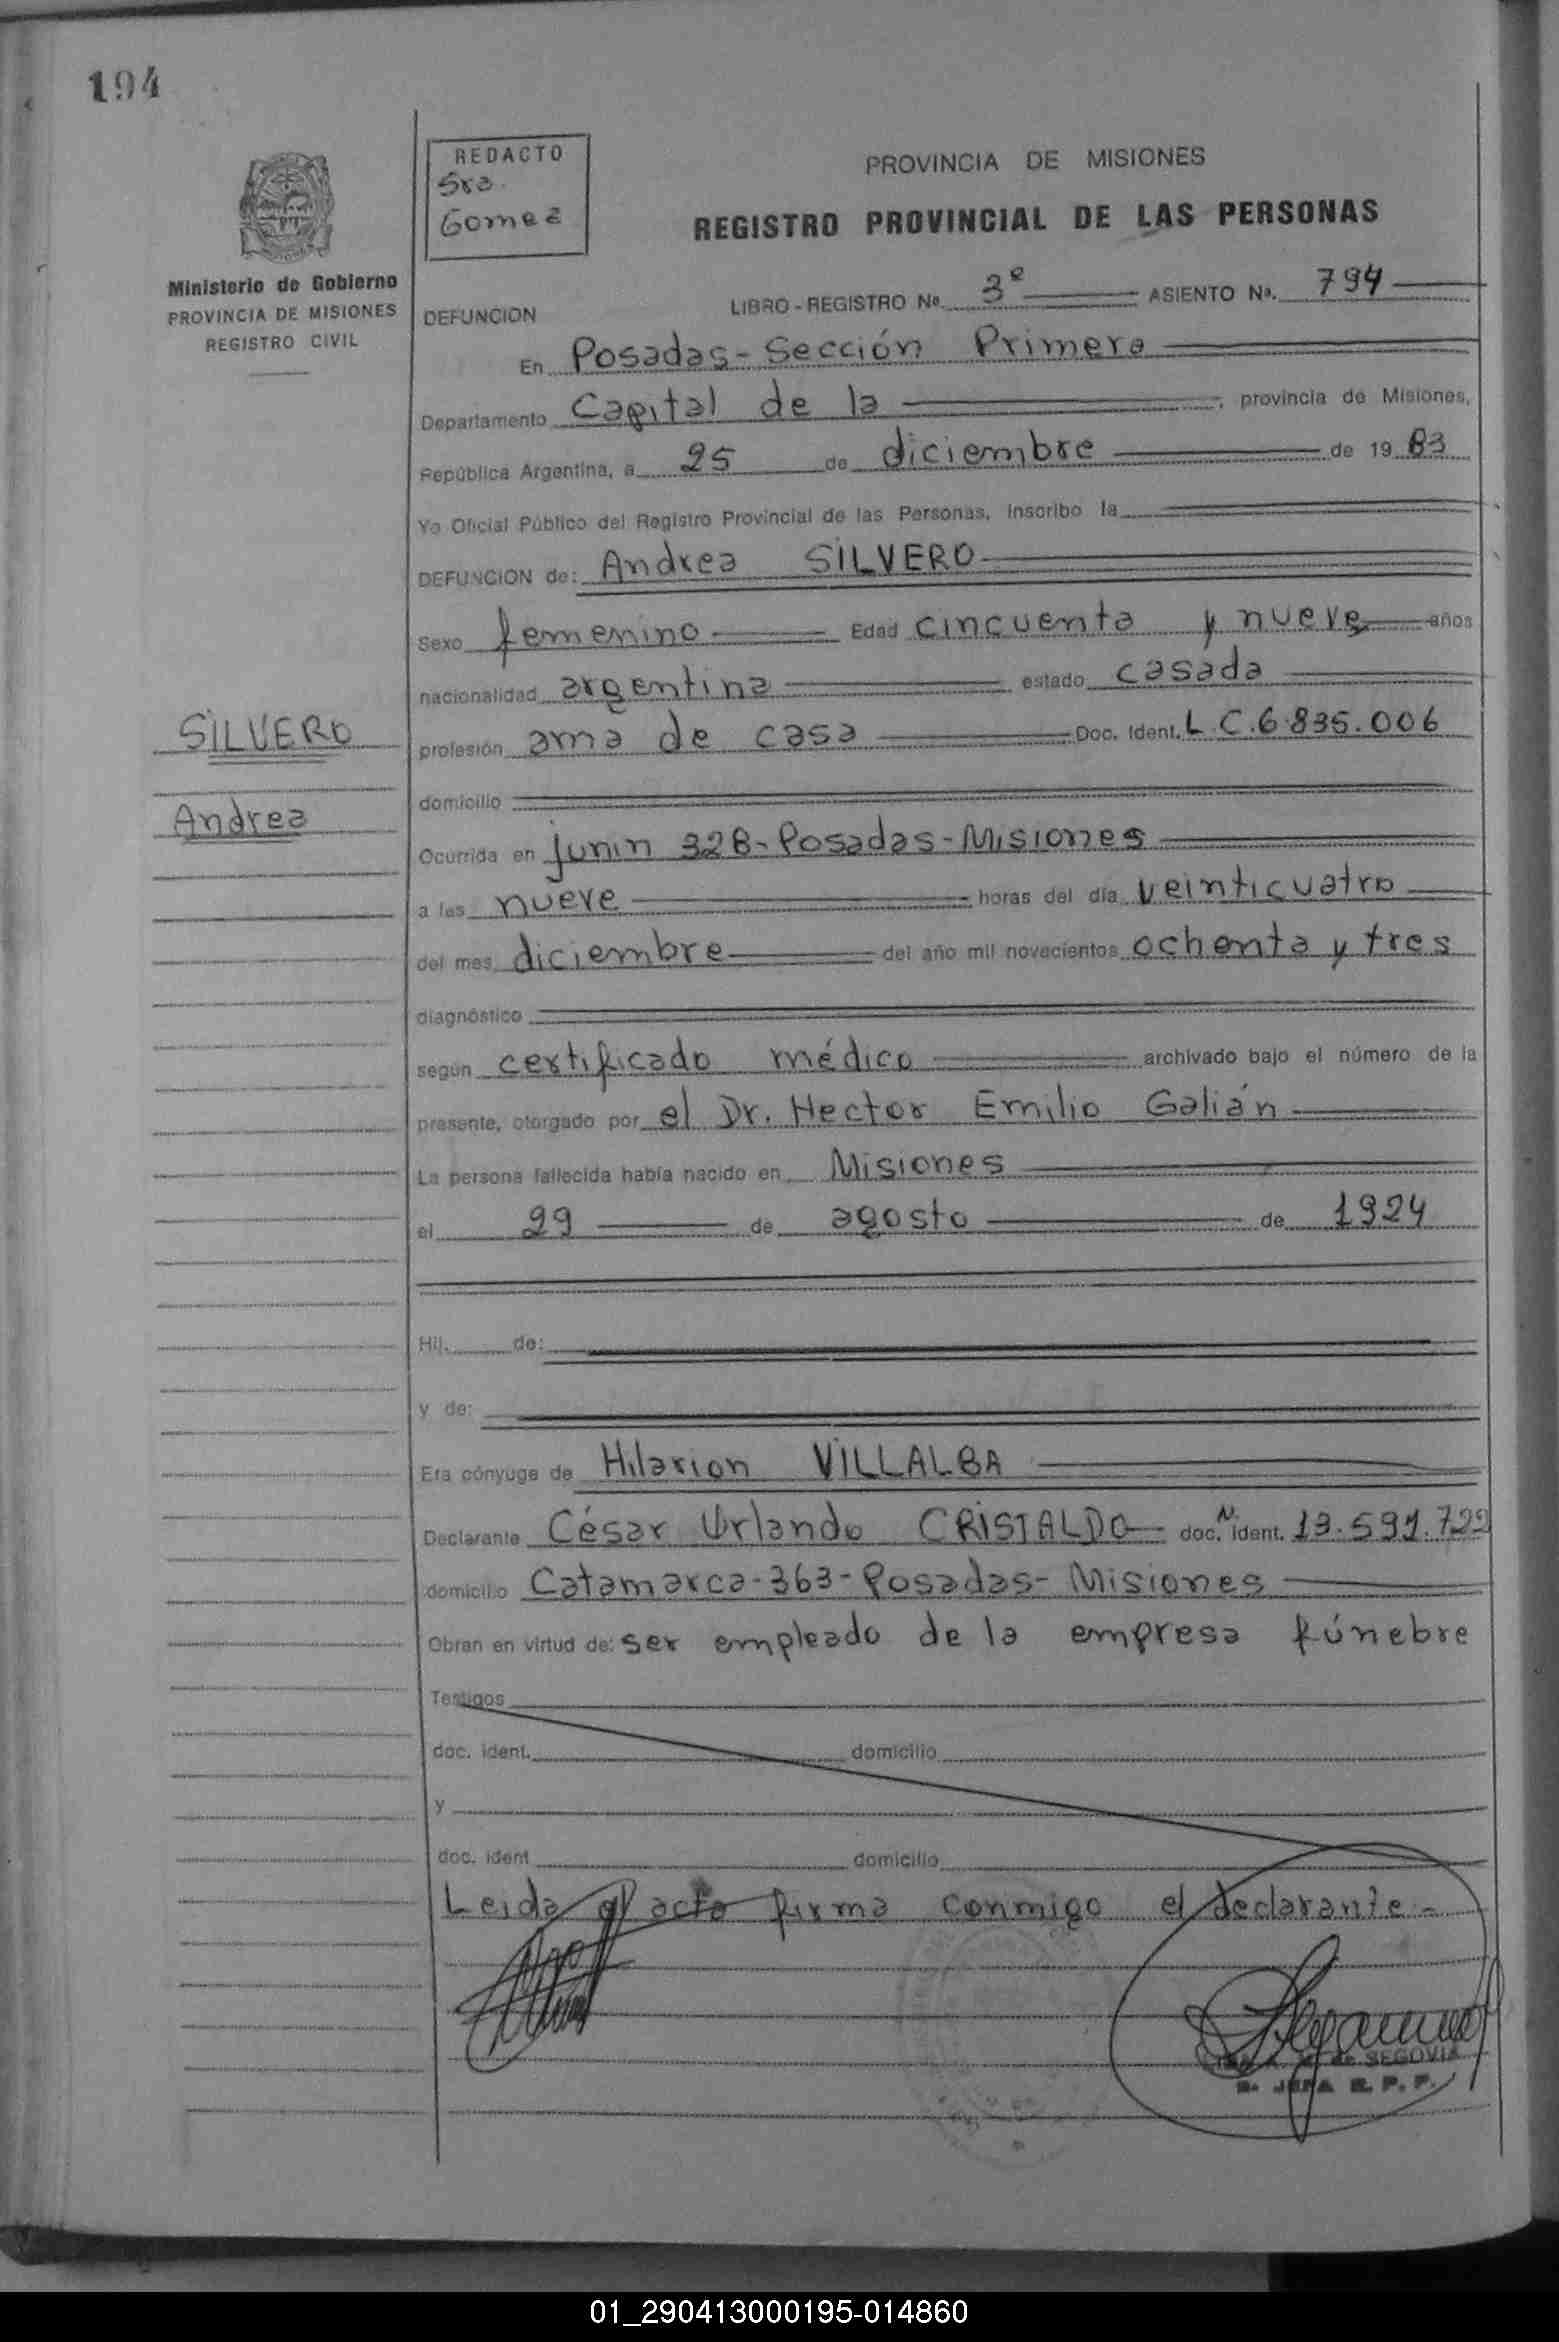 194
REDACTO
Sra.
Gomez
PROVINCIA DE MISIONES
REGISTRO PROVINCIAL DE LAS PERSONAS
Ministerio de Gobierno
PROVINCIA DE MISIONES
REGISTRO CIVIL
LIBRO - REGISTRO Nº 3º ASIENTO Nº. 794
DEFUNCION
En Posadas - Sección Primera
Departamento Capital de la , provincia de Misiones,
República Argentina, a 25 de diciembre de 19 83
Yo Oficial Público del Registro Provincial de las Personas, inscribo la
DEFUNCION de: Andrea SILVERO
Sexo femenino Edad cincuenta y nueve años
nacionalidad argentina estado casada
SILVERO
profesión ama de casa Doc. Ident. L.C. 6.835.006
domicilio
Andrea
Ocurrida en junin 328 - Posadas - Misiones
a las nueve horas del día veinticuatro
del mes diciembre del año mil novecientos ochenta y tres
diagnóstico
según certificado médico archivado bajo el número de la
presente, otorgado por el Dr. Hector Emilio Galián
La persona fallecida había nacido en Misiones
el 29 de agosto de 1924
Hij. de:
y de:
Era cónyuge de Hilarion VILLALBA
Declarante César Orlando CRISTALDO doc. ident. N. 13.591.722
domicilio Catamarca - 363 - Posadas - Misiones
Obran en virtud de: ser empleado de la empresa fúnebre
Testigos
doc. ident. domicilio
y
doc. ident domicilio
Leida el acta firma conmigo el declarante.-
de SEGOVIA
JEFA R. P. P.
01_290413000195-014860